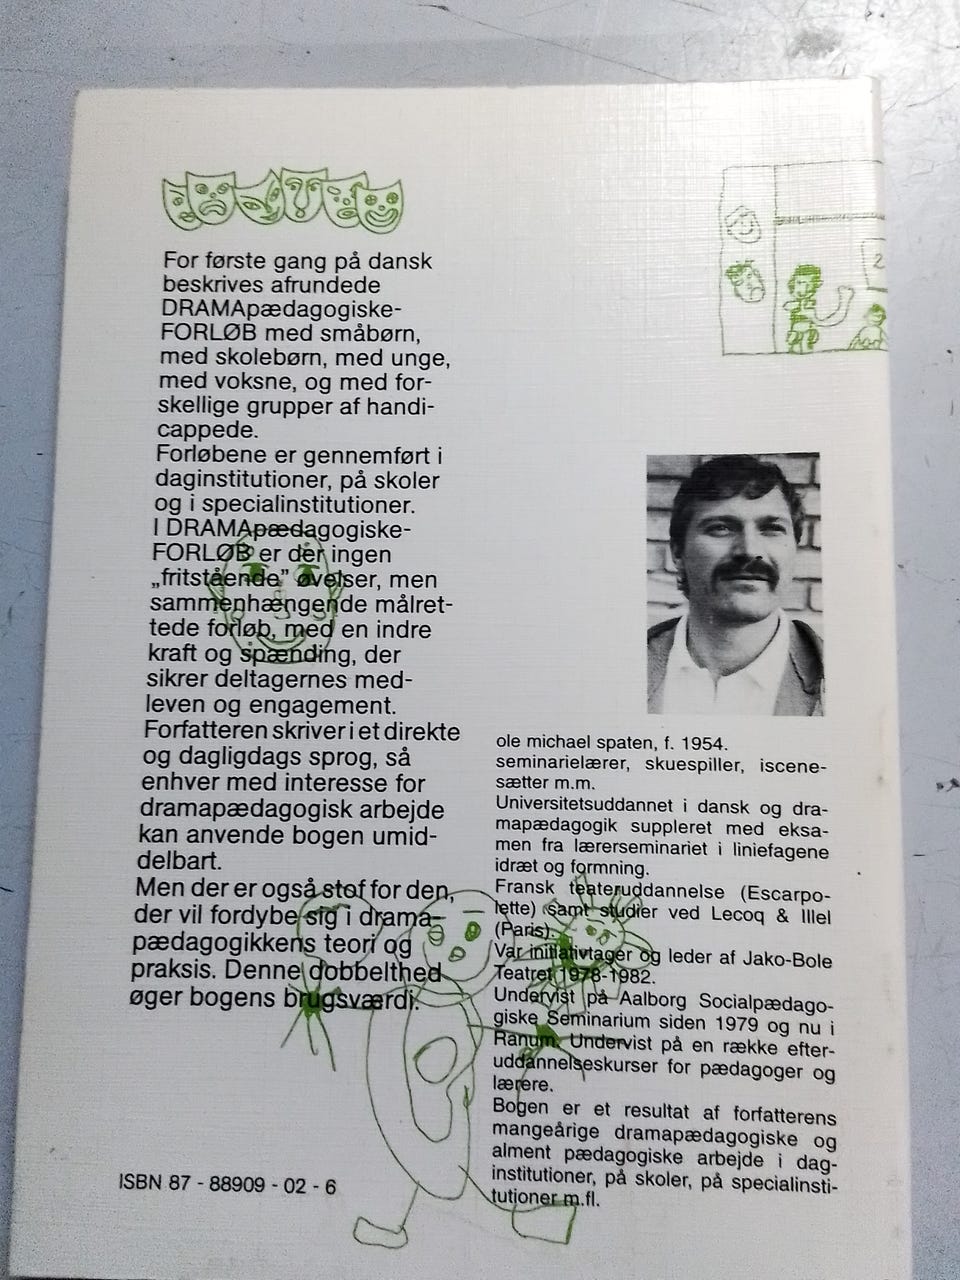 For første gang på dansk
beskrives afrundede
DRAMApædagogiske-
FORLØB med småbørn,
med skolebørn, med unge,
med voksne, og med for-
skellige grupper af handi-
cappede.
Forløbene er gennemført i
daginstitutioner, på skoler
og i specialinstitutioner.
I DRAMApædagogiske-
FORLØB er der ingen
„fritstående” øvelser, men
sammenhængende målret-
tede forløb, med en indre
kraft og spænding, der
sikrer deltagernes med-
leven og engagement.
Forfatteren skriver i et direkte
og dagligdags sprog, så
enhver med interesse for
dramapædagogisk arbejde
kan anvende bogen umid-
delbart.
Men der er også stof for den,
der vil fordybe sig i drama-
pædagogikkens teori og
praksis. Denne dobbelthed
øger bogens brugsværdi.
ISBN 87 - 88909 - 02 - 6
2
ole michael spaten, f. 1954.
seminarielærer, skuespiller, iscene-
sætter m.m.
Universitetsuddannet i dansk og dra-
mapædagogik suppleret med eksa-
men fra lærerseminariet i liniefagene
idræt og formning.
Fransk teateruddannelse (Escarpo-
lette) samt studier ved Lecoq & Illel
(Paris).
Var initiativtager og leder af Jako-Bole
Teatret 1978-1982.
Undervist på Aalborg Socialpædago-
giske Seminarium siden 1979 og nu i
Ranum. Undervist på en række efter-
uddannelseskurser for pædagoger og
lærere.
Bogen er et resultat af forfatterens
mangeårige dramapædagogiske og
alment pædagogiske arbejde i dag-
institutioner, på skoler, på specialinsti-
tutioner m.fl.